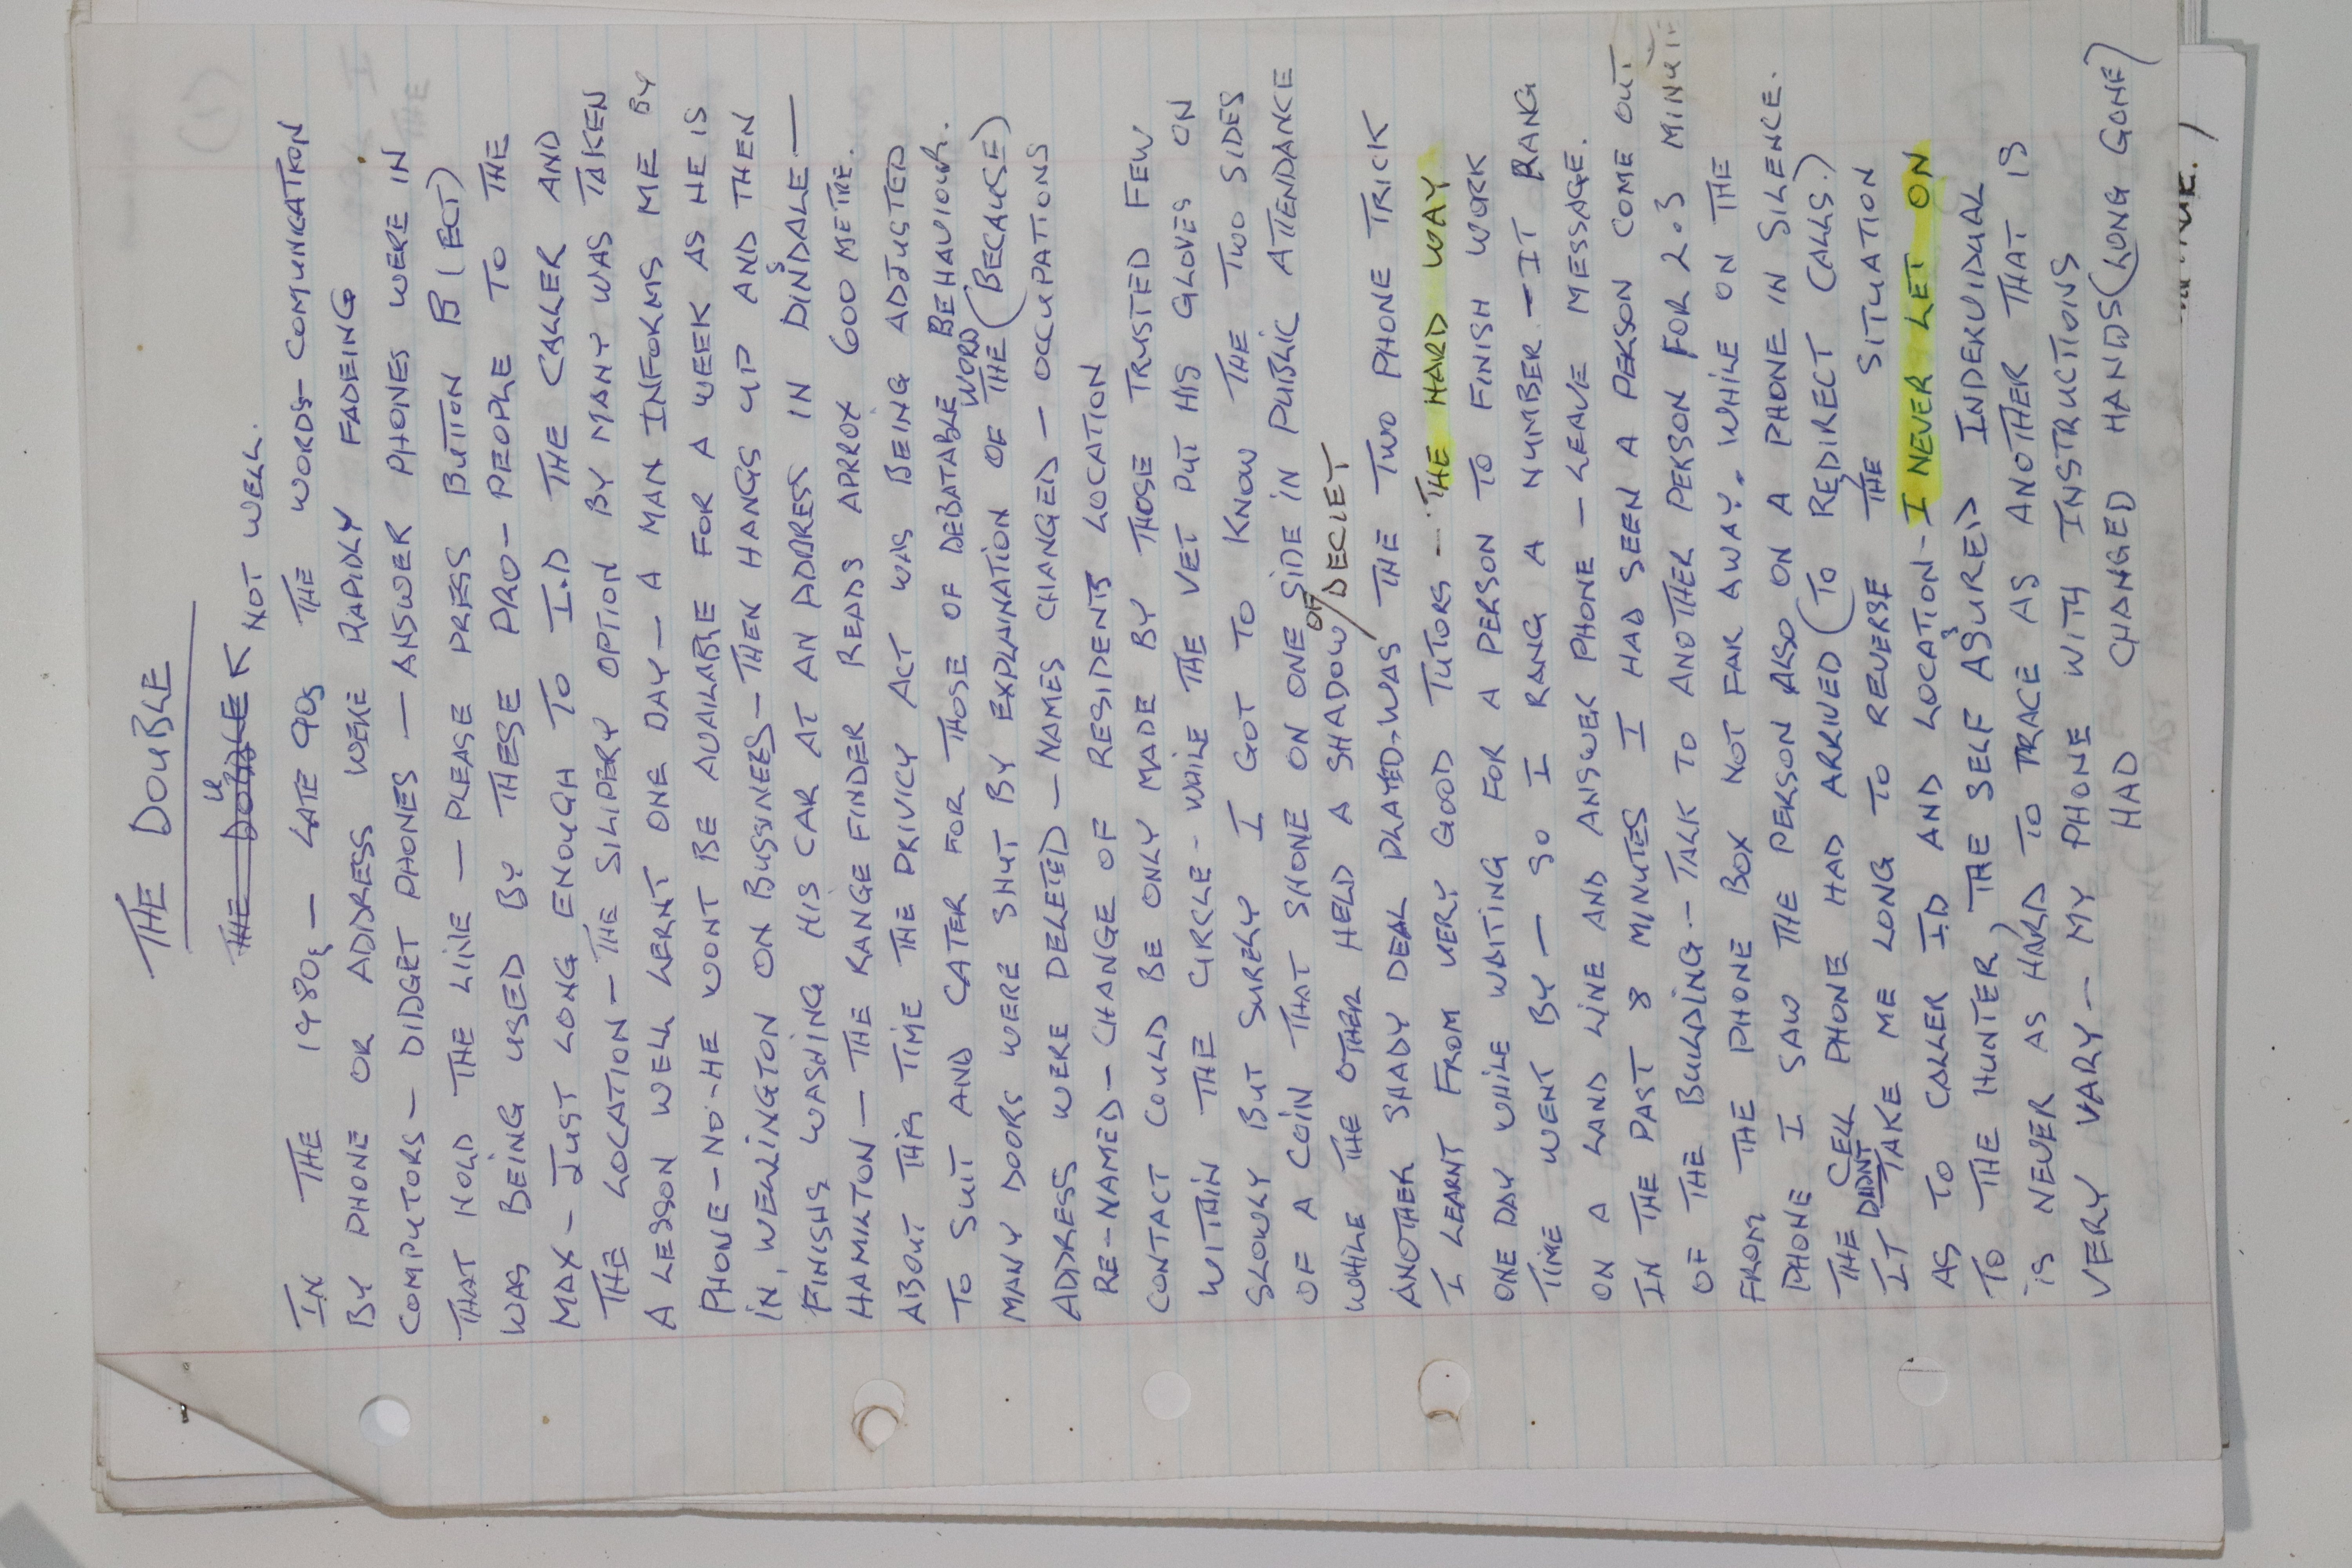 THE DOUBLE
THE DOUBLE NOT WELL.
IN THE 1980s – LATE 90s THE WORDS – COMUNICATION
BY PHONE OR ADDRESS WERE RAPIDLY FADEING
COMPUTORS – DIDGET PHONES – ANSWER PHONES WERE IN
THAT HOLD THE LINE – PLEASE PRESS BUTTON B (ECT)
WAS BEING USED BY THESE PRO – PEOPLE TO THE
MAX – JUST LONG ENOUGH TO I.D THE CALLER AND
THE LOCATION – THE SLIPERY OPTION BY MANY WAS TAKEN
A LESSON WELL LERNT ONE DAY – A MAN INFORMS ME BY
PHONE – NO – HE WONT BE AVAILABLE FOR A WEEK AS HE IS
IN, WELLINGTON ON BUSSINESS – THEN HANGS UP AND THEN
FINISHS WASHING HIS CAR AT AN ADDRESS IN DINSDALE –
HAMILTON – THE RANGE FINDER READS APRROX 600 METRE.
ABOUT THIS TIME THE PRIVICY ACT WAS BEING ADJUSTED
TO SUIT AND CATER FOR THOSE OF DEBATABLE BEHAVIOUR.
MANY DOORS WERE SHUT BY EXPLAINATION OF THE WORD (BECAUSE)
ADDRESS WERE DELETED – NAMES CHANGED – OCCUPATIONS
RE-NAMED – CHANGE OF RESIDENTS LOCATION
CONTACT COULD BE ONLY MADE BY THOSE TRUSTED FEW
WITHIN THE CIRCLE – WHILE THE VET PUT HIS GLOVES ON
SLOWLY BUT SURELY I GOT TO KNOW THE TWO SIDES
OF A COIN THAT SHONE ON ONE SIDE IN PUBLIC ATTENDANCE
WHILE THE OTHER HELD A SHADOW OF / DECIET
ANOTHER SHADY DEAL PLAYED – WAS THE TWO PHONE TRICK
I LEARNT FROM VERY GOOD TUTORS – THE HARD WAY
ONE DAY WHILE WAITING FOR A PERSON TO FINISH WORK
TIME WENT BY – SO I RANG A NUMBER – IT RANG
ON A LAND LINE AND ANSWER PHONE – LEAVE MESSAGE.
IN THE PAST 8 MINUTES I HAD SEEN A PERSON COME OUT
OF THE BUILDING – TALK TO ANOTHER PERSON FOR 2.3 MINUTE
FROM THE PHONE BOX NOT FAR AWAY. WHILE ON THE
PHONE I SAW THE PERSON ALSO ON A PHONE IN SILENCE.
THE CELL PHONE HAD ARRIVED (TO REDIRECT CALLS.)
IT DIDNT TAKE ME LONG TO REVERSE THE SITUATION
AS TO CALLER ID AND LOCATION – I NEVER LET ON
TO THE HUNTER, THE SELF ASSURED INDERVIDUAL
IS NEVER AS HARD TO TRACE AS ANOTHER THAT IS
VERY VARY – MY PHONE WITH INSTRUCTIONS
HAD CHANGED HANDS (LONG GONE)